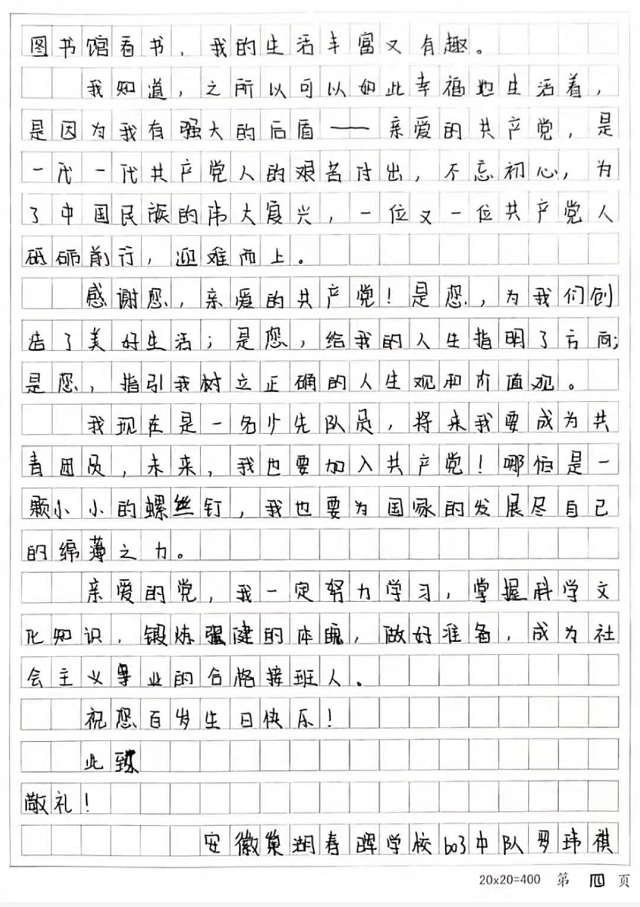 图书馆看书，我的生活丰富又有趣。
我知道，之所以可以如此幸福地生活着，
是因为我有强大的后盾——亲爱的共产党，是
一代一代共产党人的艰苦付出，不忘初心，为
了中国民族的伟大复兴，一位又一位共产党人
砥砺前行，迎难而上。
感谢您，亲爱的共产党！是您，为我们创
造了美好生活；是您，给我的人生指明了方向；
是您，指引我树立正确的人生观和价值观。
我现在是一名少先队员，将来我要成为共
青团员，未来，我也要加入共产党！哪怕是一
颗小小的螺丝钉，我也要为国家的发展尽自己
的绵薄之力。
亲爱的党，我一定努力学习，掌握科学文
化知识，锻炼强健的体魄，做好准备，成为社
会主义事业的合格接班人。
祝您百岁生日快乐！
此致
敬礼！
安徽巢湖春晖学校603中队罗玮祺
20×20=400 第 四 页